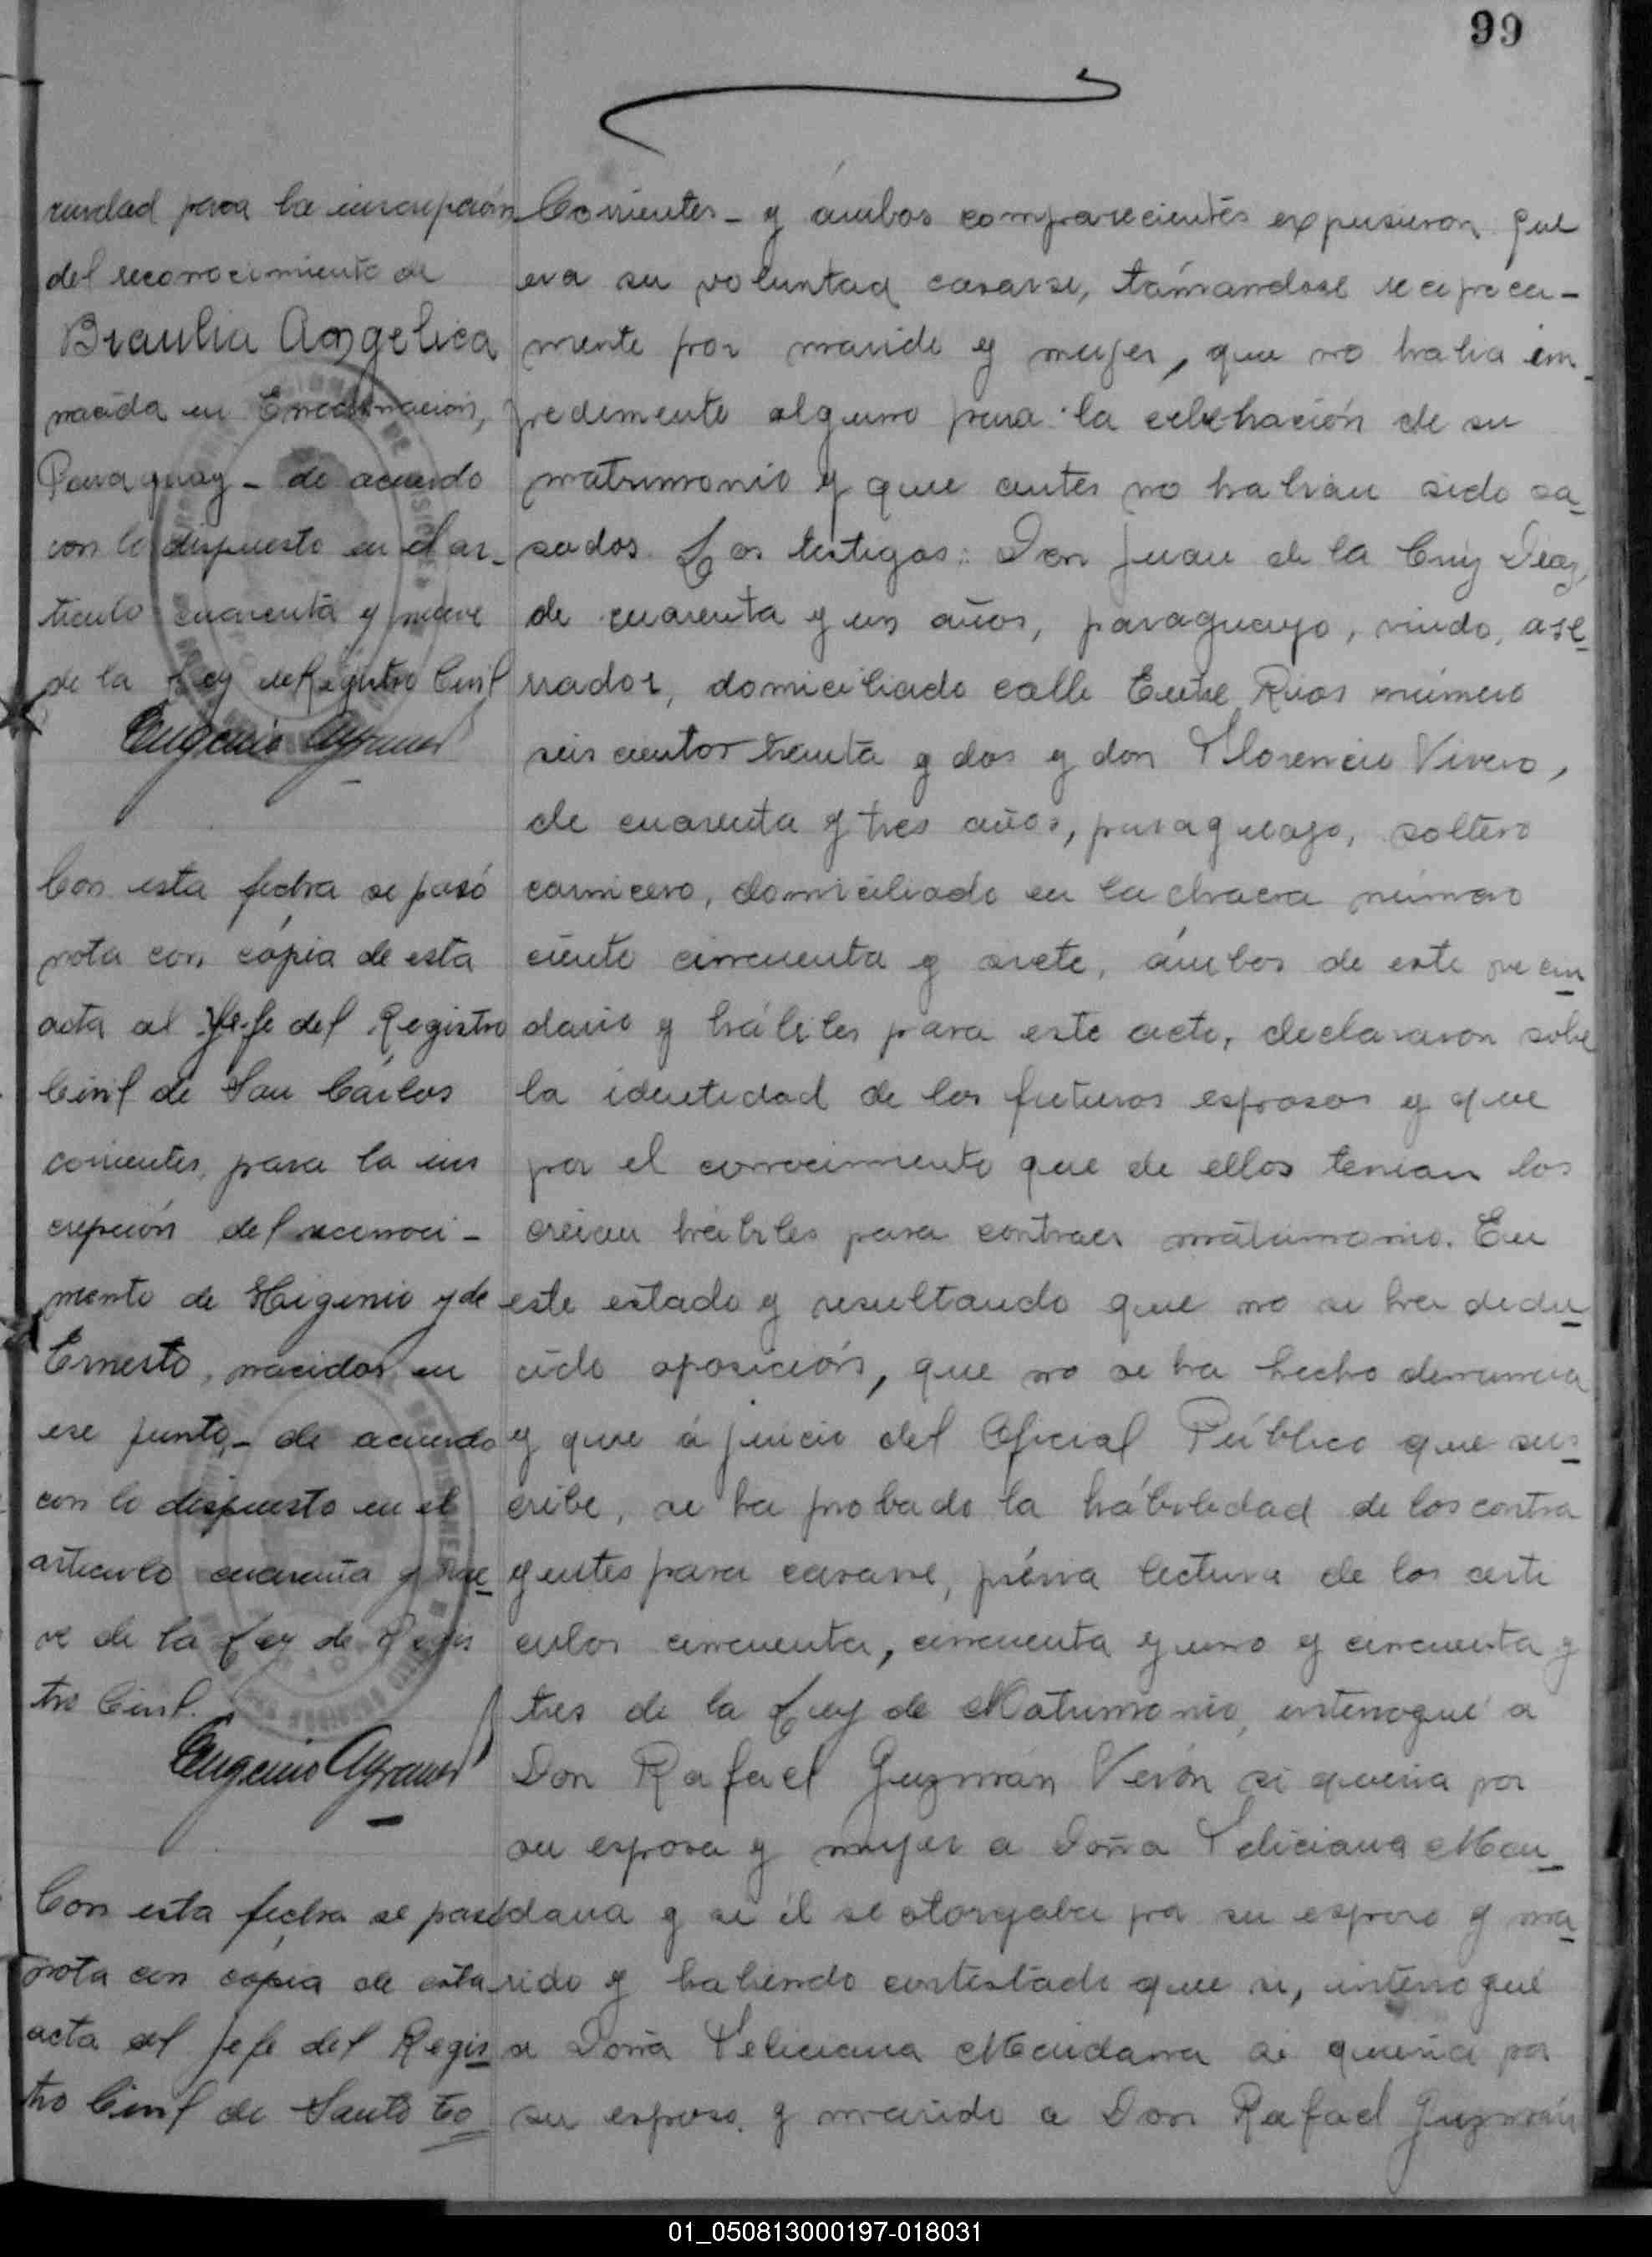 99
rundad para la inscripción
del reconocimiento de
Braulia Angelica
nacida en Encarnación,
Paraguay - de acuerdo
con lo dispuesto en el ar-
ticulo cuarenta y nueve
de la Ley de Registro Civil
Con esta fecha se pasó
nota con cópia de esta
acta al Jefe del Registro
Civil de San Cárlos
corrientes, para la ins
cripción del reconoci-
miento de Higinio y de
Ernesto, nacidos en
ese punto,- de acuerdo
con lo dispuesto en el
articulo cuarenta y nue
ve de la Ley de Regis
tro Civil.
Con esta fecha se pasó
nota con cópia de esta
acta al Jefe del Regis
tro Civil de Santo to
Corrientes - y ámbos comparecientes expusieron que
era su voluntad casarse, tomandose reciproca-
mente por marido y mujer, que no habia im-
pedimento alguno para la celebración de su
matrimonio y que antes no habian sido ca
sados. Los testigos: Don Juan de la Cruz Diaz,
de cuarenta y un años, paraguayo, viudo, ase
rrador, domiciliado calle Entre Rios número
seiscientos treinta y dos y don Florencio Vivero,
de cuarenta y tres años, paraguayo, soltero
carnicero, domiciliado en la chacra número
ciento cincuenta y siete, ámbos de este vecin
dario y hábiles para este acto, declararon sobre
la identidad de los futuros esposos y que
por el conocimiento que de ellos tenian los
creian hábiles para contraer matrimonio. En
este estado y resultando que no se ha dedu
cido oposición, que no se ha hecho denuncia
y que á juicio del Oficial Público que sus
cribe, se ha probado la hábilidad de los contra
yentes para casarse, prévia lectura de los arti
culos cincuenta, cincuenta y uno y cincuenta y
tres de la Ley de Matrimonio, interrogué a
Don Rafael Guzmán Verón si queria por
su esposa y mujer a Doña Feliciana Man
dana y si él se otorgaba por su esposo y ma
rido y habiendo contestado que si, interrogué
a Doña Feliciana Maidana si queria por
su esposo y marido a Don Rafael Guzmán
01_050813000197-018031